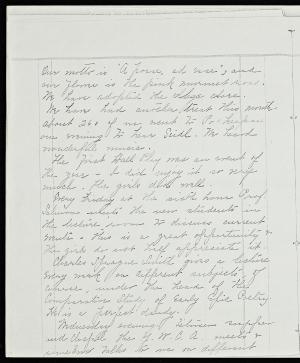 Our motto is "A posse, ad esse", and
our flower is the pink
We have adopted the
We have had another treat this month
about 260 of us went to Po'keepsie
one evening to hear Seidl. We heard
wonderful music.
The First Hall Play was an event of
the year - I did enjoy it so very
much. The girls did well.
Every Friday at the sixth hour Prof
Salmon meets the new students in
the lecture room to discuss current
events - This is a great opportunity &
the girls do not half appreciate it
Charles Sprague Smith gives a lecture
every week on different subjects, of
course, under the head of the
Comparative Study of Early Epic Poetry.
He is a perfect dandy.
Wednesday evening between supper
and chapel the Y. W. C. A. meets &
talks to us on different